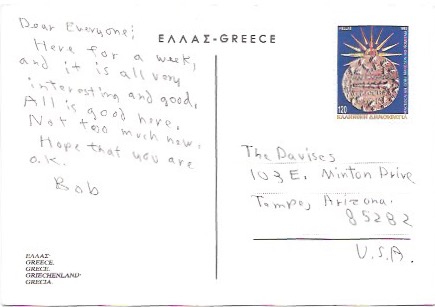 Dear Everyone;
Here for a week,
and it is all very
interesting and good.
All is good here.
Not too much now.
Hope that you are
o.k.
Bob
ΕΛΛΑΣ-GREECE
ΕΛΛΑΣ
120
ΕΛΛΗΝΙΚΗ ΔΗΜΟΚΡΑΤΙΑ
The Davises
103 E. Minton Drive
Tempe, Arizona.
85282
U.S.A.
ΕΛΛΑΣ-
GREECE.
GRECE.
GRIECHENLAND-
GRECIA.